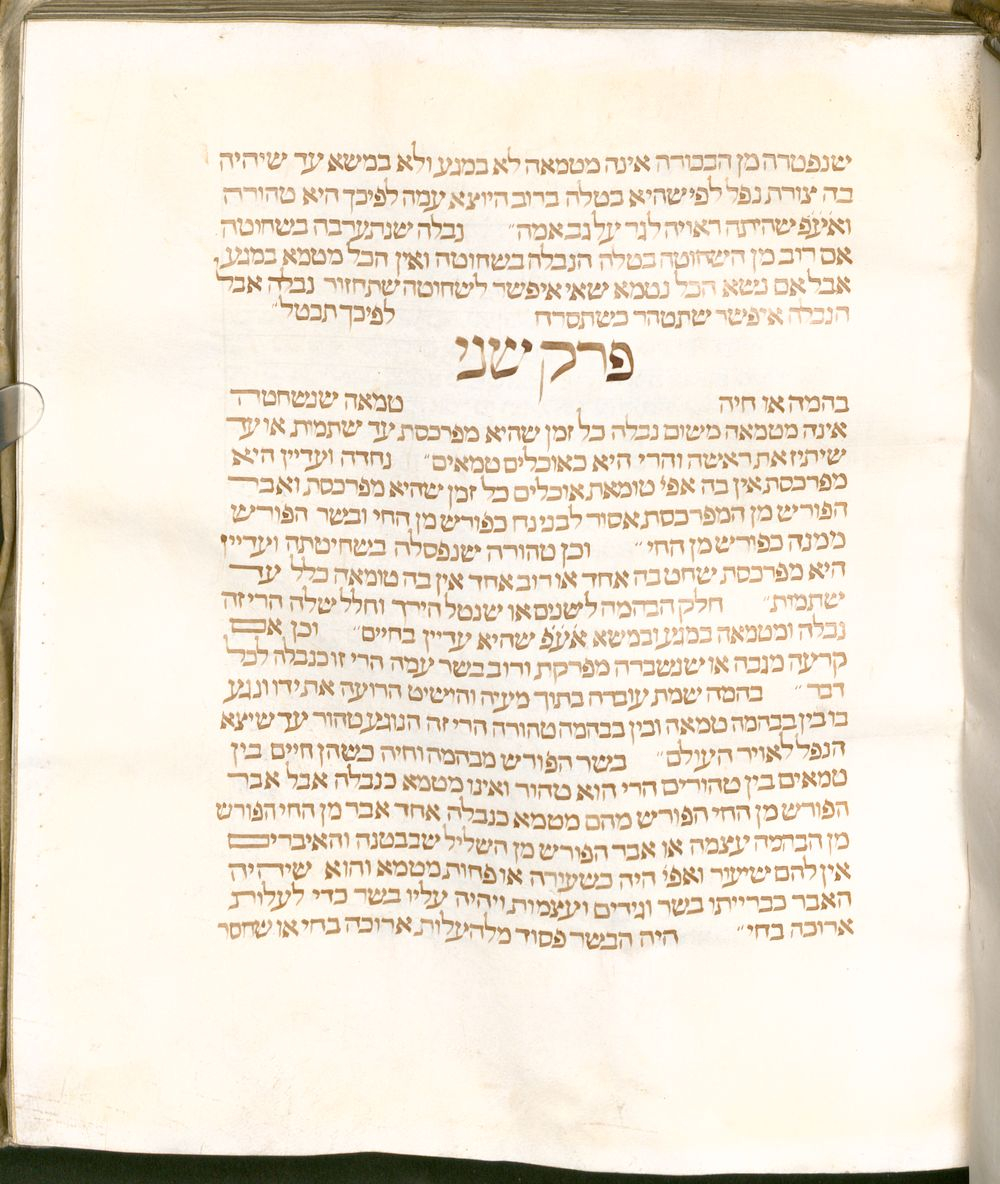 שנפטרה מן הבכורה אינה מטמאה לא במגע ולא במשא עד שיהיה
בה צורת נפל לפי שהיא בטלה ברוב היוצא עמה לפיכך היא טהורה
ואע״פ שהיתה ראויה לגר על גב אמה״ נבלה שנתערבה בשחוטה
אם רוב מן השחוטה בטלה הנבלה בשחוטה ואין הכל מטמא במגע
אבל אם נשא הכל נטמא שאי איפשר לשחוטה שתחזור נבלה אבל
הנבלה איפשר שתטהר כשתסרח לפיכך תבטל״
פרק שני
בהמה או חיה טמאה שנשחטה
אינה מטמאה משום נבלה כל זמן שהיא מפרכסת עד שתמות או עד
שיתיז את ראשה והרי היא כאוכלים טמאים״ נחרה ועדיין היא
מפרכסת אין בה אפי׳ טומאת אוכלים כל זמן שהיא מפרכסת ואבר
הפורש מן המפרכסת אסור לבני נח כפורש מן החי ובשר הפורש
ממנה כפורש מן החי״ וכן טהורה שנפסלה בשחיטתה ועדיין
היא מפרכסת שחט בה אחד או רוב אחד אין בה טומאה כלל עד
שתמות״ חלק הבהמה לשנים או שנטל הירך וחלל שלה הרי זה
נבלה ומטמאה במגע ובמשא אע״פ שהיא עדיין בחיים״ וכן אם
קרעה מגבה או שנשברה מפרקת ורוב בשר עמה הרי זו כנבלה לכל
דבר״ בהמה שמת עוברה בתוך מעיה והושיט הרועה את ידו ונגע
בו בין בבהמה טמאה ובין בבהמה טהורה הרי זה הנוגע טהור עד שיצא
הנפל לאויר העולם״ בשר הפורש מבהמה וחיה כשהן חיים בין
טמאים בין טהורים הרי הוא טהור ואינו מטמא כנבלה אבל אבר
הפורש מן החי הפורש מהם מטמא כנבלה אחד אבר מן החי הפורש
מן הבהמה עצמה או אבר הפורש מן השליל שבבטנה והאיברים
אין להם שיעור ואפי׳ היה כשעורה או פחות מטמא והוא שיהיה
האבר כברייתו בשר וגידים ועצמות ויהיה עליו בשר כדי לעלות
ארוכה בחי״ היה הבשר פסוד מלהעלות ארוכה בחי או שחסר